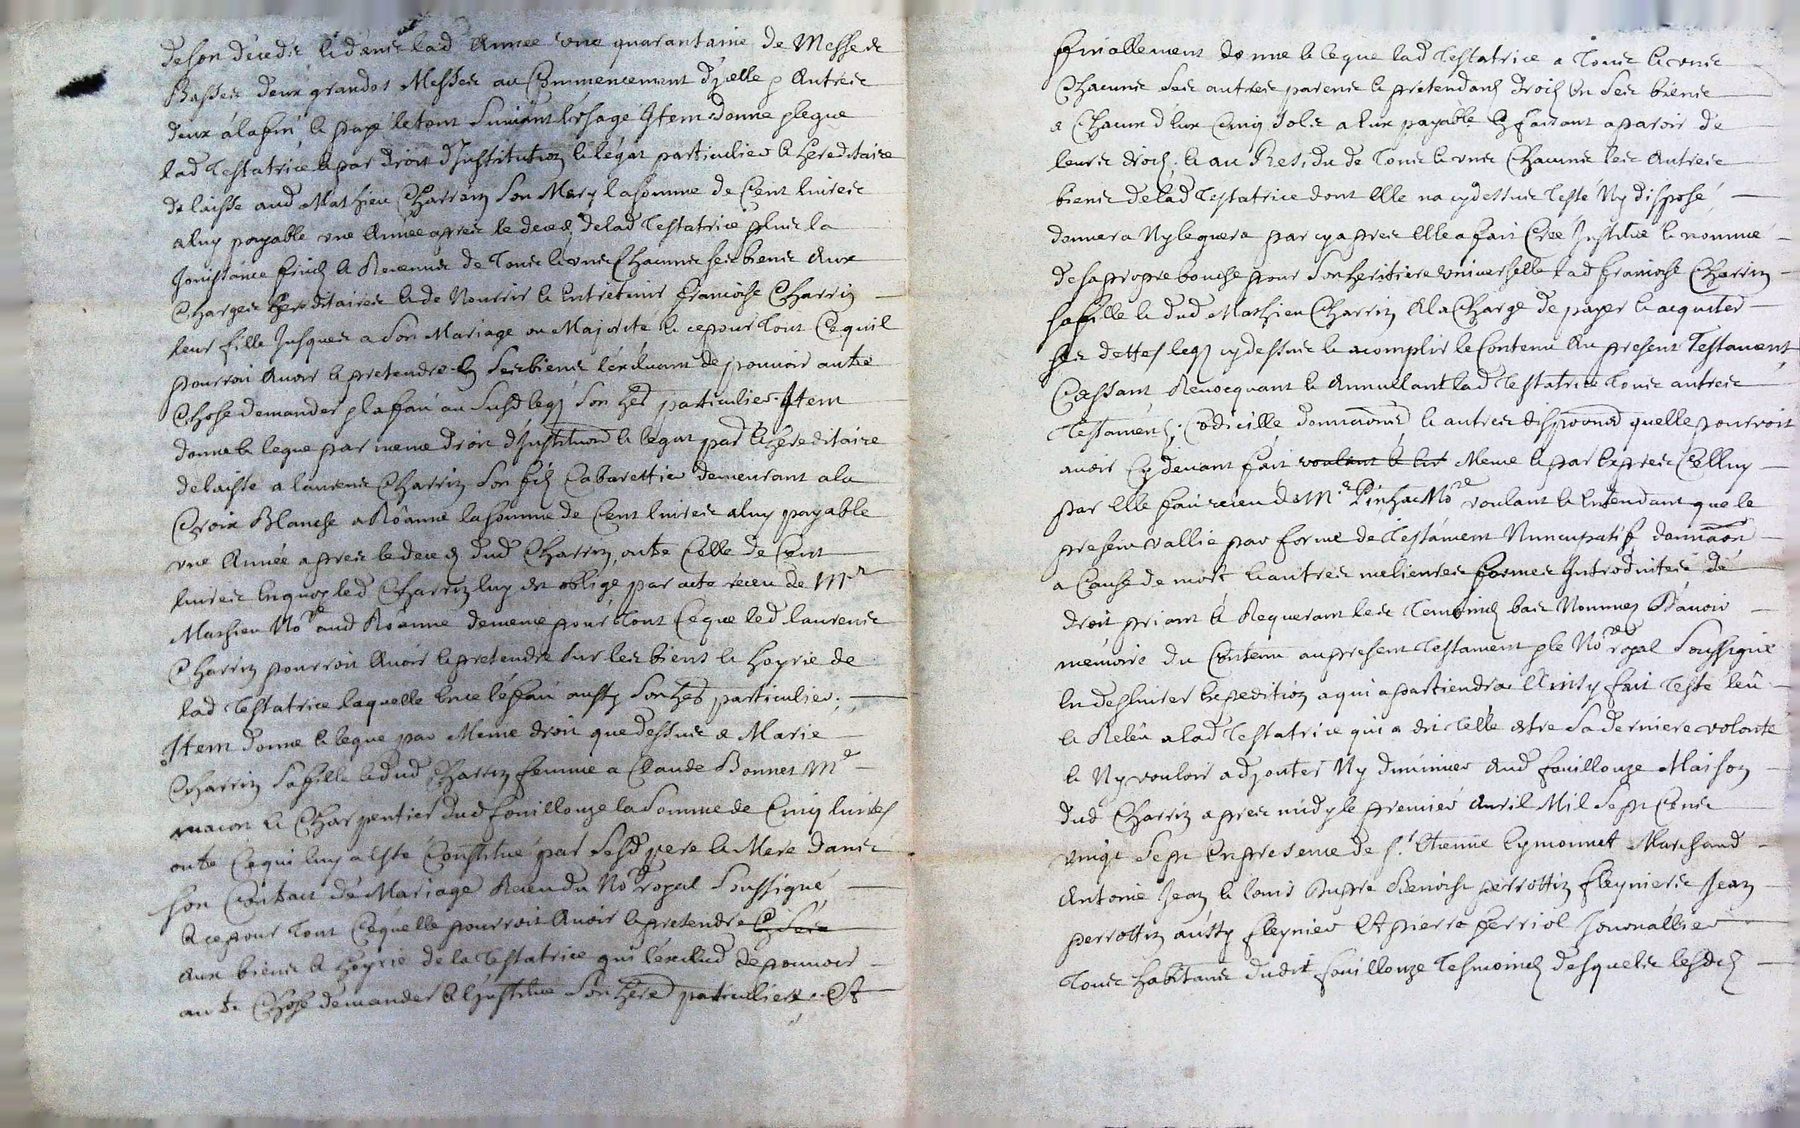 de son deceds et dans lad annee une quarantaine de Messe de
Basses deux grandes Messes au Commencement d'jcelle & Autres
deux à la fin le payé le tout suivant l'usage Item donne & legue
lad Testatrice et par droit d'Institution et légat particulier et hereditaire
delaisse aud Mathieu Charrin son Mary la somme de Cent livres
a luy payable une Année apres le deceds de lad Testatrice plus la
Jouissance fruits et Revenus de Tous et uns Chacuns ses biens aux
Charges hereditaires et de Nourrir et Entretenir francoise Charrin
leur fille Jusques a son Mariage ou Majorité et ce pour Tout Ce quil
pourroit Avoir et pretendre en ses biens l'excluant de pouvoir autre
Chose demander et la fait au susd legs son her particulier. Item
donne et legue par meme droit d'Institution et legat par et hereditaire
delaisse a laurens Charrin son fils Cabarettier demeurant a la
Croix Blanche a Roanne la somme de Cent livres a luy payable
une Année apres le deceds dud Charrin, outre Celle de Cent
livres en quoy led Charrin luy est obligé par acte receu de Mr
Mathieu Nore aud Roanne de meme pour Tout Ce que led laurens
Charrin pourroit Avoir et pretendre sur les biens et hoyrie de
lad Testatrice laquelle en ce l'a fait aussy son her particulier.
Item donne et legue par Meme droit que dessus a Marie
Charrin sa fille et dud Charrin femme a Claude Bonnet Mre
macon et Charpentier dud fouillouze la somme de Cinq livres
outre Ce qui luy a esté Constitué par sesd pere et Mere dans
son Contract de Mariage Receu du Nore royal soussigné,
et ce pour Tout Ce quelle pourroit Avoir et pretendre en ses
aux biens et hoyrie de la Testatrice qui l'exclud de pouvoir
autre Chose demander et l'jnstitue son here particuliere. Et
finallement donne et legue lad Testatrice a Tous et uns
Chacuns ses autres parens et pretendants droits En ses biens
a Chacun d'eux Cinq sols a eux payable En faisant aparoir de
leurs droits. et au Residu de Tous et uns Chacuns les Autres
biens de lad Testatrice dont Elle na cy dessus Testé Ny disposé
donnera Ny leguera par cy apres Elle a fait Créé Institué et nommé
de sa propre bouche pour son heritiere universelle lad francoise Charrin
sa fille et dud Mathieu Charrin A la Charge de payer et acquiter
ses dettes legs cy dessus et acomplir le Contenu Au present Testament
Cassant Revocquant et Annullant lad Testatrice Tous autres
Testaments, Codicille donnaons et autres dispoons quelle pourroit
avoir Cy devant fait voulant et Meme et par Expres Celluy
par Elle fait receu de Mr Nore voulant et Entendant que le
present vallie par forme de Testament Nuncupatif donnaon
a Cause de mort et autres melieures formes Introduites de
droit priant et Requerant les Temoins bas Nommes D'avoir
mémoire du Contenu au present Testament & le Nore royal soussigné
En deslivrer Expedition a qui apartiendra Ainsy fait Testé leû
et Releû a lad Testatrice qui a dit Telle estre sa derniere volonté
et Ny vouloir adjouter Ny diminuer Aud fouillouze Maison
dud Charrin apres midy le premier Avril Mil sept Cens
vingt sept En presence de sr Etienne Eymonnet Marchand
Antoine Jean et louis Dupre Benoist perrottin fleyniers Jean
perrottin aussy fleynier Et pierre ferriol Journallier
Tous habitans dudit fouillouze Tesmoins desquels lesdits